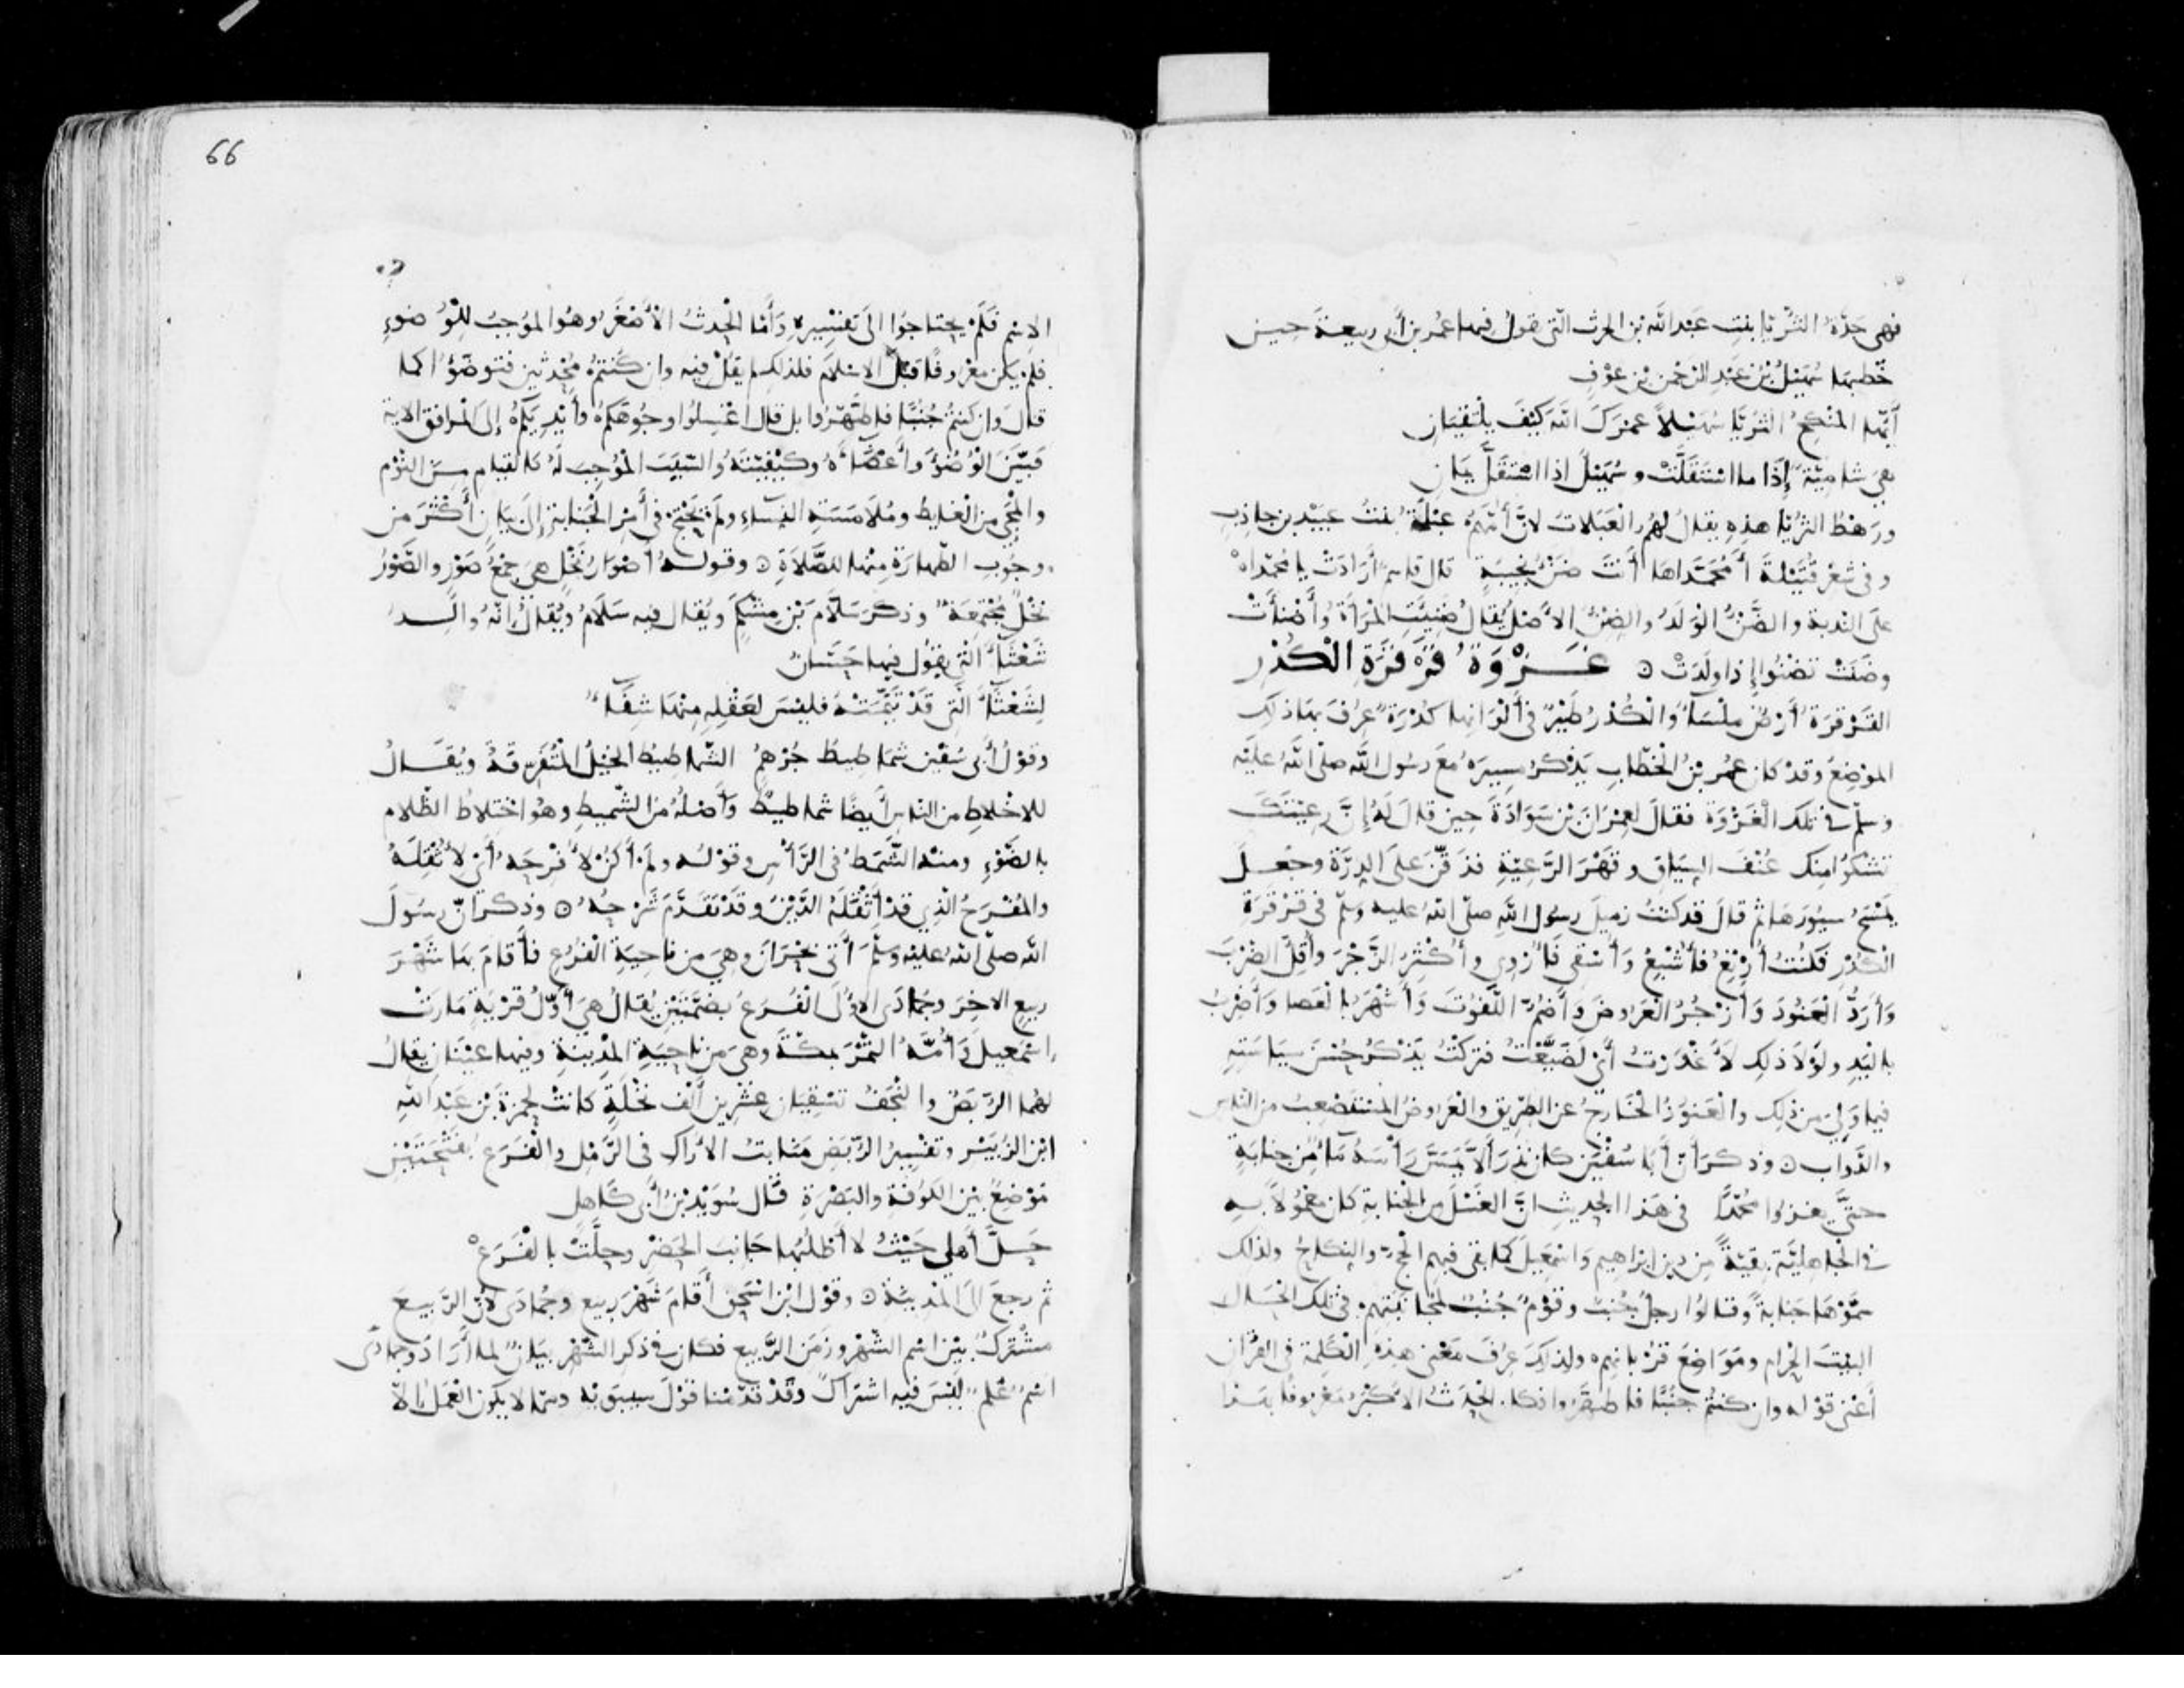 فهى جَدّةُ الثُّرَيّا بنتِ عَبْد اللّه بن الحرث الّتى يقولُ فيها عُمر بن أبى ربيعة حين
خَطبها سُهَيْلُ بْنُ عَبْدِ الرّحْمن بْنِ عوْفٍ
أَيُّها المُنْكِحُ الثُّرَيّا سُهَيْلاً عَمْرَكَ اللّهَ كَيْفَ يَلْتَقِيَانِ
هِىَ شاميّةٌ إِذَا ما اسْتَقَلَّتْ وسُهَيْلٌ اذا اسْتَقَلَّ يَمَانِ
ورَهْطُ الثُّريّا هذهِ يقال لهُم العَبَلاتُ لانّ أمّهم عَبْلَةُ بنتُ عبَيْد بن جاذِبٍ
وفى شعْر قُتَيْلةَ أَمُحَمّداهَا أَنْتَ ضَنْؤُ نَجِيبَةٍ قال قاسمٌ أرَادَتْ يا محمّداهْ
على النّدبة والضَّنْؤُ الوَلَدُ والضِّنْؤُ الاصْلُ يُقالُ ضَنِئَتِ المَرْأَةُ وأضْنأَتْ
وضَنَتْ تَضْنُوا إذا ولَدتْ ۞ غَزْوَةُ قَرْقَرَةِ الْكُدْرِ
القَرْقَرَةُ أرْضٌ ملْسَاءُ والْكُدْرُ طَيْرٌ فى ألْوَانِها كُدْرَةٌ عُرِفَ بهَا ذلك
الموْضِعُ وقدْ كان عُمر بْنُ الخطّابِ يَذْكرُ مسِيرَهُ مَعَ رسُول اللّه صلّى اللّهُ عليْه
وسلّم فى تلك الْغَزْوَةِ فقالَ لعِمْرَانَ بْن سَوَادَةَ حين قالَ لَهُ إنَّ رعِيّتَكَ
تشكُوا منك عُنْفَ السِّيَاقِ وقَهْرَ الرّعيّةِ فدَقَّنَ علَى الدِّرّةِ وجَعلَ
يمْسَحُ سيُورَهَا ثمّ قالَ قد كُنْتُ زميلَ رسُول اللّه صلّى اللّهُ عليه وسلّم فى قَرْقَرَةِ
الكُدْرِ فكُنْتُ أُرْتِعُ فأُشْبِعُ وأَسْقى فَأُرْوِى وأُكْثِرُ الزَّجْرَ وأُقِلُّ الضّرْبَ
وَأرُدُّ العَنُودَ وَأزْجُرُ العَرُوضَ وأضُمُّ اللَّفوتَ وَأُشْهِرُ بالعَصا وَأضْرِبُ
باليَدِ ولوْلاَ ذلك لأَغْدَرْتُ أىْ لَضَيَّعْتُ فتركْتُ يَذْكُرُ حُسْنَ سيَاسَتِهِ
فيما وَلِىَ من ذلِك والعَنُودُ الخَارِجُ عن الطّرِيق والعَرُوضُ المُسْتَصْعِبُ من النّاس
والدّوابّ ۞ وذكرَ أنّ أبا سُفْيٰن كان نَذَرَ ألاّ يَمَسَّ رَأْسَهُ مَاءٌ مِن جنابةٍ
حتّى يغزُوا محمّدًا فى هَذا الحديثِ انّ الغُسْلَ من الجَنابة كانَ معْمُولاً بهِ
فى الجَاهليّة بقيّةً من دين ابْرٰاهيم وَاسْمٰعيلَ كما بقى فيهم الحجُّ والنّكاحُ ولذلك
سمّوْهَا جَنابةً وقالُوا رجلٌ جُنُبٌ وقَوْمٌ جُنُبٌ لمُجَانَبَتِهم فى تلك الحَالِ
البيْتَ الحرام ومَوَاضِعَ قرُبَاتِهم ولذلكَ عُرِفَ مَعْنى هذِه الكَلِمَة فى القُرْآن
أعْنى قوْله وان كنتُم جُنُبًا فاطهّروا فكان الحَدثُ الأَكْبَرُ مَعْرُوفًا بهذا
66
الاِسْم فَلَمْ يحتاجُوا الى تَفْسِيرِهِ وَأَمّا الحَدثُ الأَصْغَرُ وهُوا لموُجِبُ للوُضوءِ
فلمْ يكُن معْرُوفًا قبْلَ الإسْلام فلذلك لم يقلْ فيه وان كُنْتُمْ مُحْدِثين فَتوضَّؤُا كما
قال وَان كنتُم جُنُبًا فاطّهّرُوا بل قال اغسِلُوا وجُوهَكُمْ وأيْدِيَكُمْ إلى المرافق الآية
فبيَّنَ الْوُضُوءَ وأعْضَاءَهُ وكيْفِيّتَهُ والسَّبَبَ المُوجِبَ لهُ كالقيام من النَّوْم
والمَجِىءِ من الغايط ومُلاَمَسَةِ النّسآءِ ولم يَحْتَجْ فى أمْرِ الجَنابةِ إلى بيَانٍ أَكْثَرَ من
وجُوبِ الطّهارَةِ منْها للصّلاَةِ ۞ وقولهُ أصْوَارُ نَخْلٍ هىَ جمْعُ صَوْرٍ والصَّوْرُ
نَخْلٌ مُجْتَمِعَةٌ وذكرَ سَلاّمَ بْن مِشْكمٍ ويُقال فيه سَلاَمُ ويُقالُ إنّهُ والِدُ
شَعْثَاءَ الّتى يقولُ فيها حَسّانُ
لِشَعْثَاءَ الَّتى قَدْ تَيَّمَتْهُ فليْسَ لعَقْلِهِ مِنْهَا شِفَآءُ
وقوْلُ أَبى سُفْيٰن شمَاطيطُ جُرْهُمٍ الشّماطيطُ الخيْلُ المُتَفَرِّقَةُ ويُقَالُ
للاخلاطِ من النّاس أيضًا شماطيطُ وأصْلُهُ من الشّميطِ وهُو اخْتِلاَطُ الظّلام
بالضَّوْءِ ومنهُ الشَّمَطُ فى الرّأْس وقوْلهُ ولمْ أكُنْ لأُفْرِحَهُ أىْ لأُثْقِلَهُ
والمُفْرَحُ الّذِى قدْ أثْقَلَهُ الدَّيْنُ وقَدْ تَقَدَّمَ شَرْحُهُ ۞ وذكرَ انّ رسُولَ
اللّه صلّى اللّهُ عليْهِ وسلّمَ أتى بَحْرَانَ وهىَ من ناحِيَةِ الفُرُعِ فأَقامَ بهَا شَهْرَ
ربيعِ الاخِرَ وجُمَادَى الأولَى الفُرُعُ بضمّتَيْنِ يُقالُ هىَ أوّلُ قَرْيَةٍ مَارَتْ
اسْمٰعيلَ وَأُمّهُ التّمْرَ بمكّةَ وهىَ من ناحِيَةِ المَدينَةِ وفيها عيْنَانِ يقالُ
لهُما الرَّبَضُ والنَّجَفُ تسْقِيَانِ عشْرين ألْفَ نَخْلَةٍ كانتْ لحمْزَةَ بْن عَبْد اللّهِ
ابْنِ الزُّبَيْرِ وتفْسِيرُ الرّبَضِ مَنابتُ الأرَاك فى الرّمْلِ والفَرَعُ بِفَتْحَتَيْنِ
مَوْضِعٌ بيْن الكُوفة والبَصْرَةِ قَال سُوَيْدُ بْنُ أبى كاهِلٍ
حَلَّ أَهلى حَيْثُ لا أطْلُبُها جَانِبَ الحَضْرِ وحلّتْ بالفَرَعْ
ثم رجعَ الى المَدينَةِ ۞ وقوْلُ ابْنِ اسْحٰق أقامَ شَهْرَ ربيعٍ وجُمادَى لأنّ الرّبيعَ
مُشْتركٌ بيْن اسْم الشّهْر وزَمَنِ الرَّبيعِ فكان فى ذكْرِ الشّهْرِ بيَانٌ لما أرَادَ وجمادَى
اسْمٌ عَلمٌ ليْسَ فيه اشترَاكٌ وقَدْ قَدّمْنا قوْلَ سيبَوَيْه وممّا لا يكون العَمَلُ الاّ